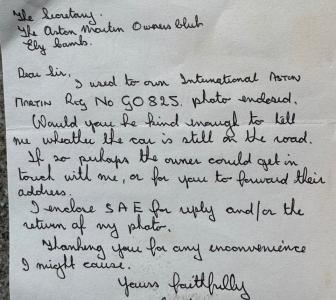 The Secretary.
The Aston Martin Owners Club
Ely Cambs.
Dear Sir,
I used to own International ASTON
MARTIN Reg No GO 825. photo enclosed.
Would you be kind enough to tell
me wheather the car is still on the road.
If so perhaps the owner could get in
touch with me, or for you to forward their
address.
I enclose S A E for reply and/or the
return of my photo.
Thanking you for any inconvenience
I might cause.
Yours faithfully